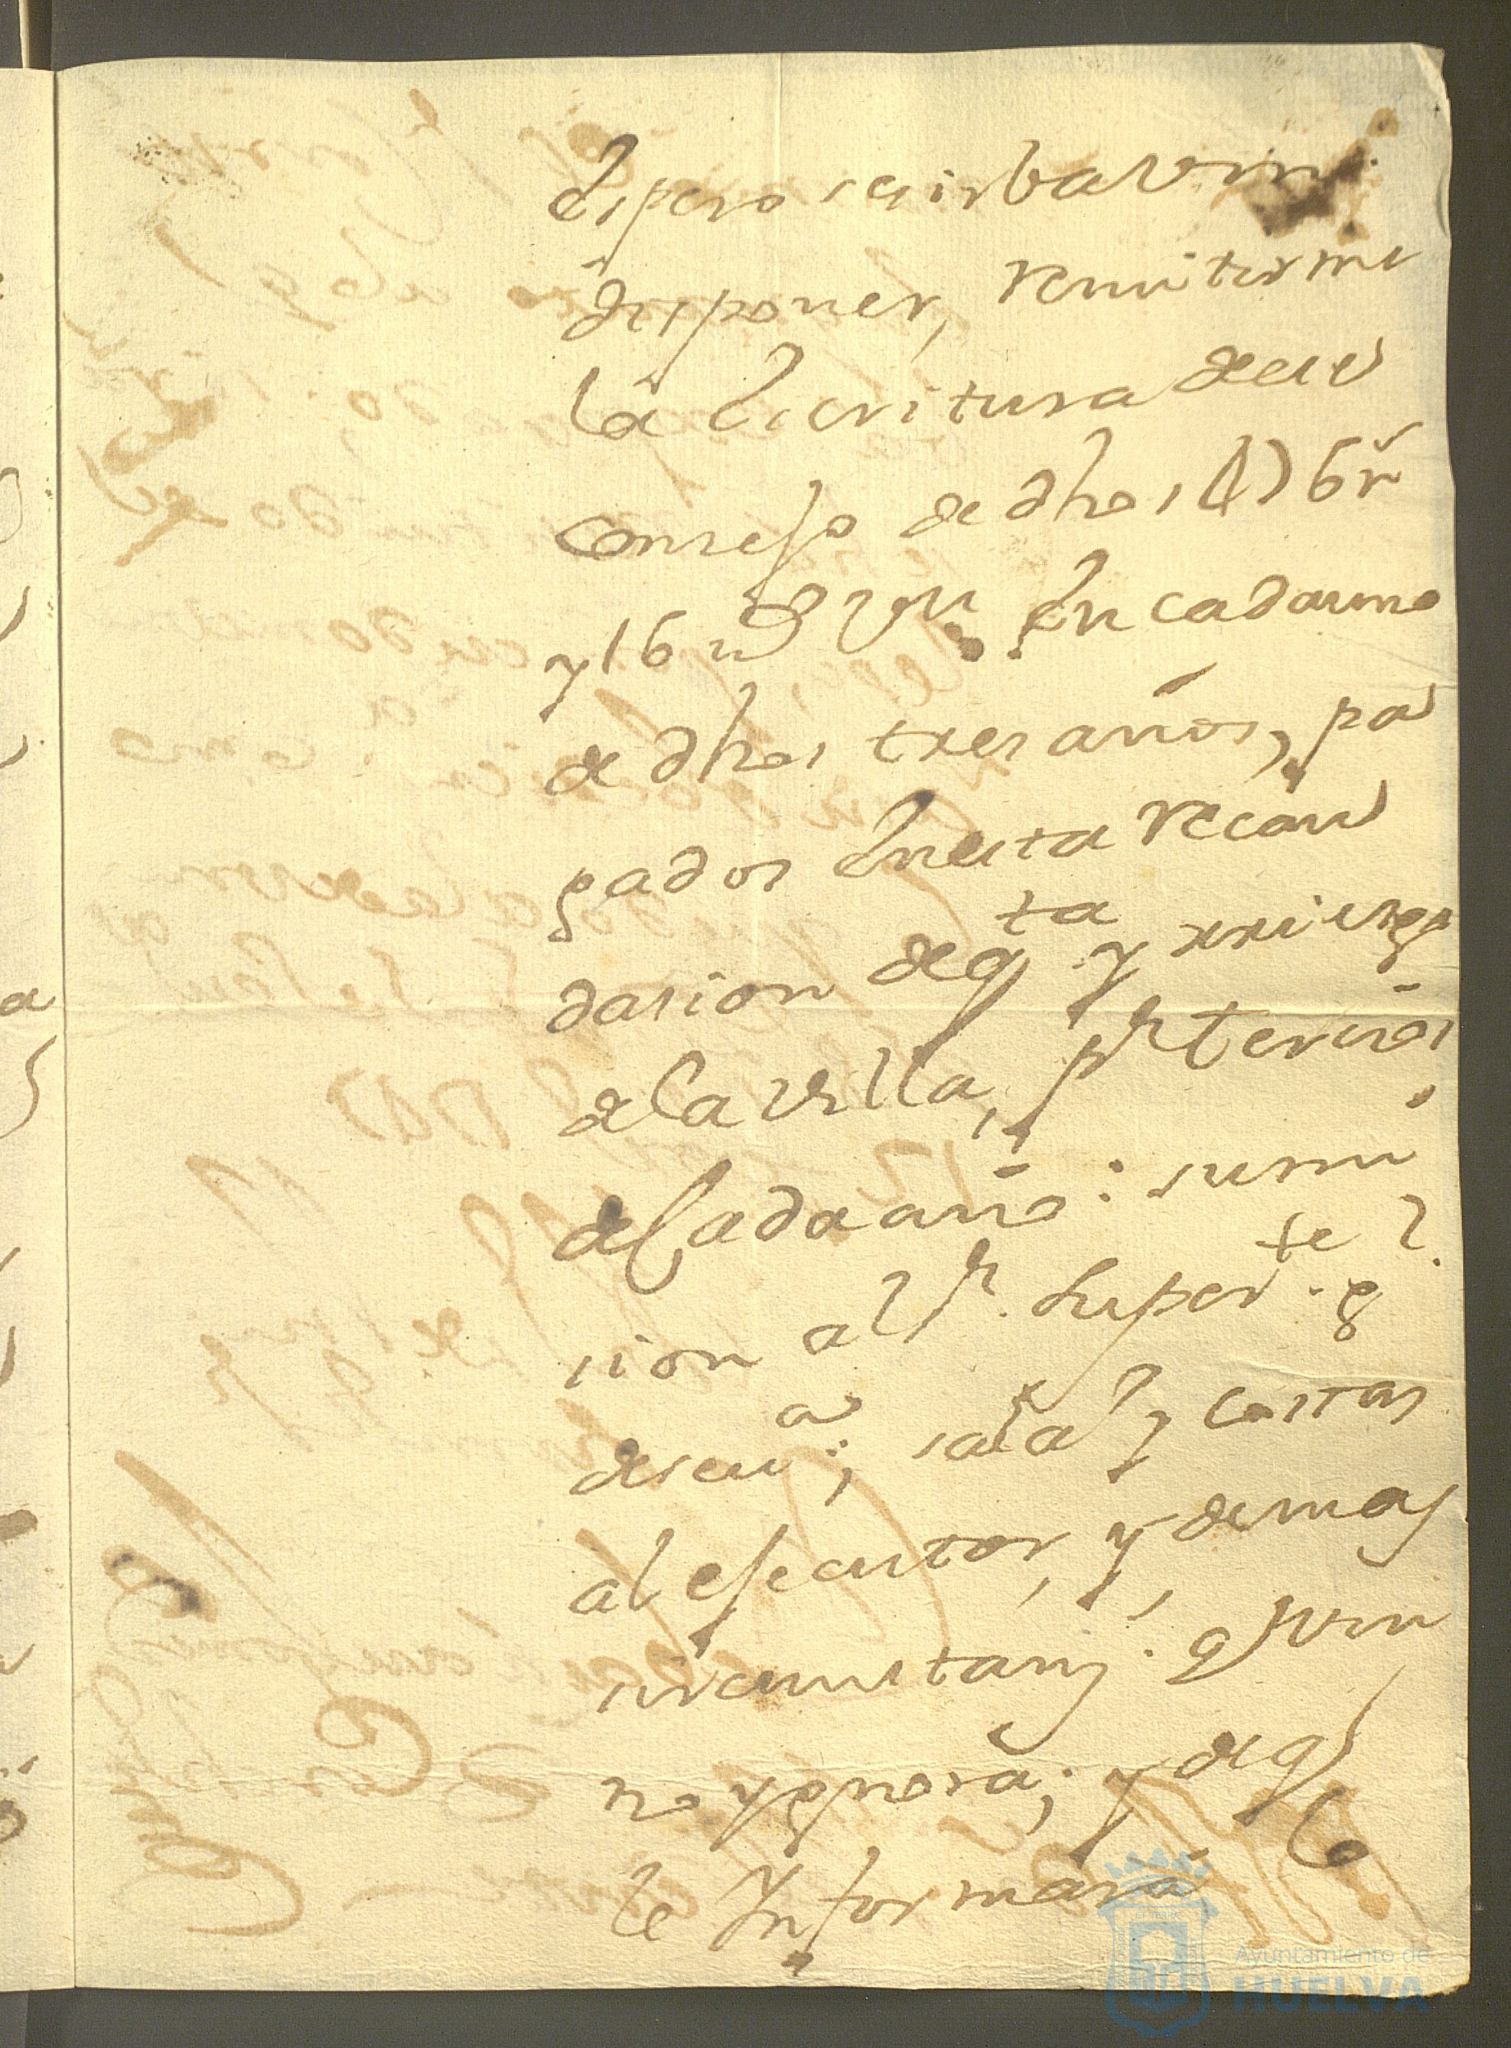 Espero se sirba Vm
disponer, remitirme
la Escritura de ese
Consejo de dhos 1(l) 6 rs
y 16 mrs Vn. En cada uno
de dhos tres años, pa
gados En esta recau
dasion de qta y rriesgo
de la Villa, pr tersios
de Cada año: sumi
sion al Sr. Superte
de seva; sala y costas
al efecutor, y demas
sircunstans. q Vm
no ygnora; y de q
le Informará
Ayuntamiento de
HUELVA